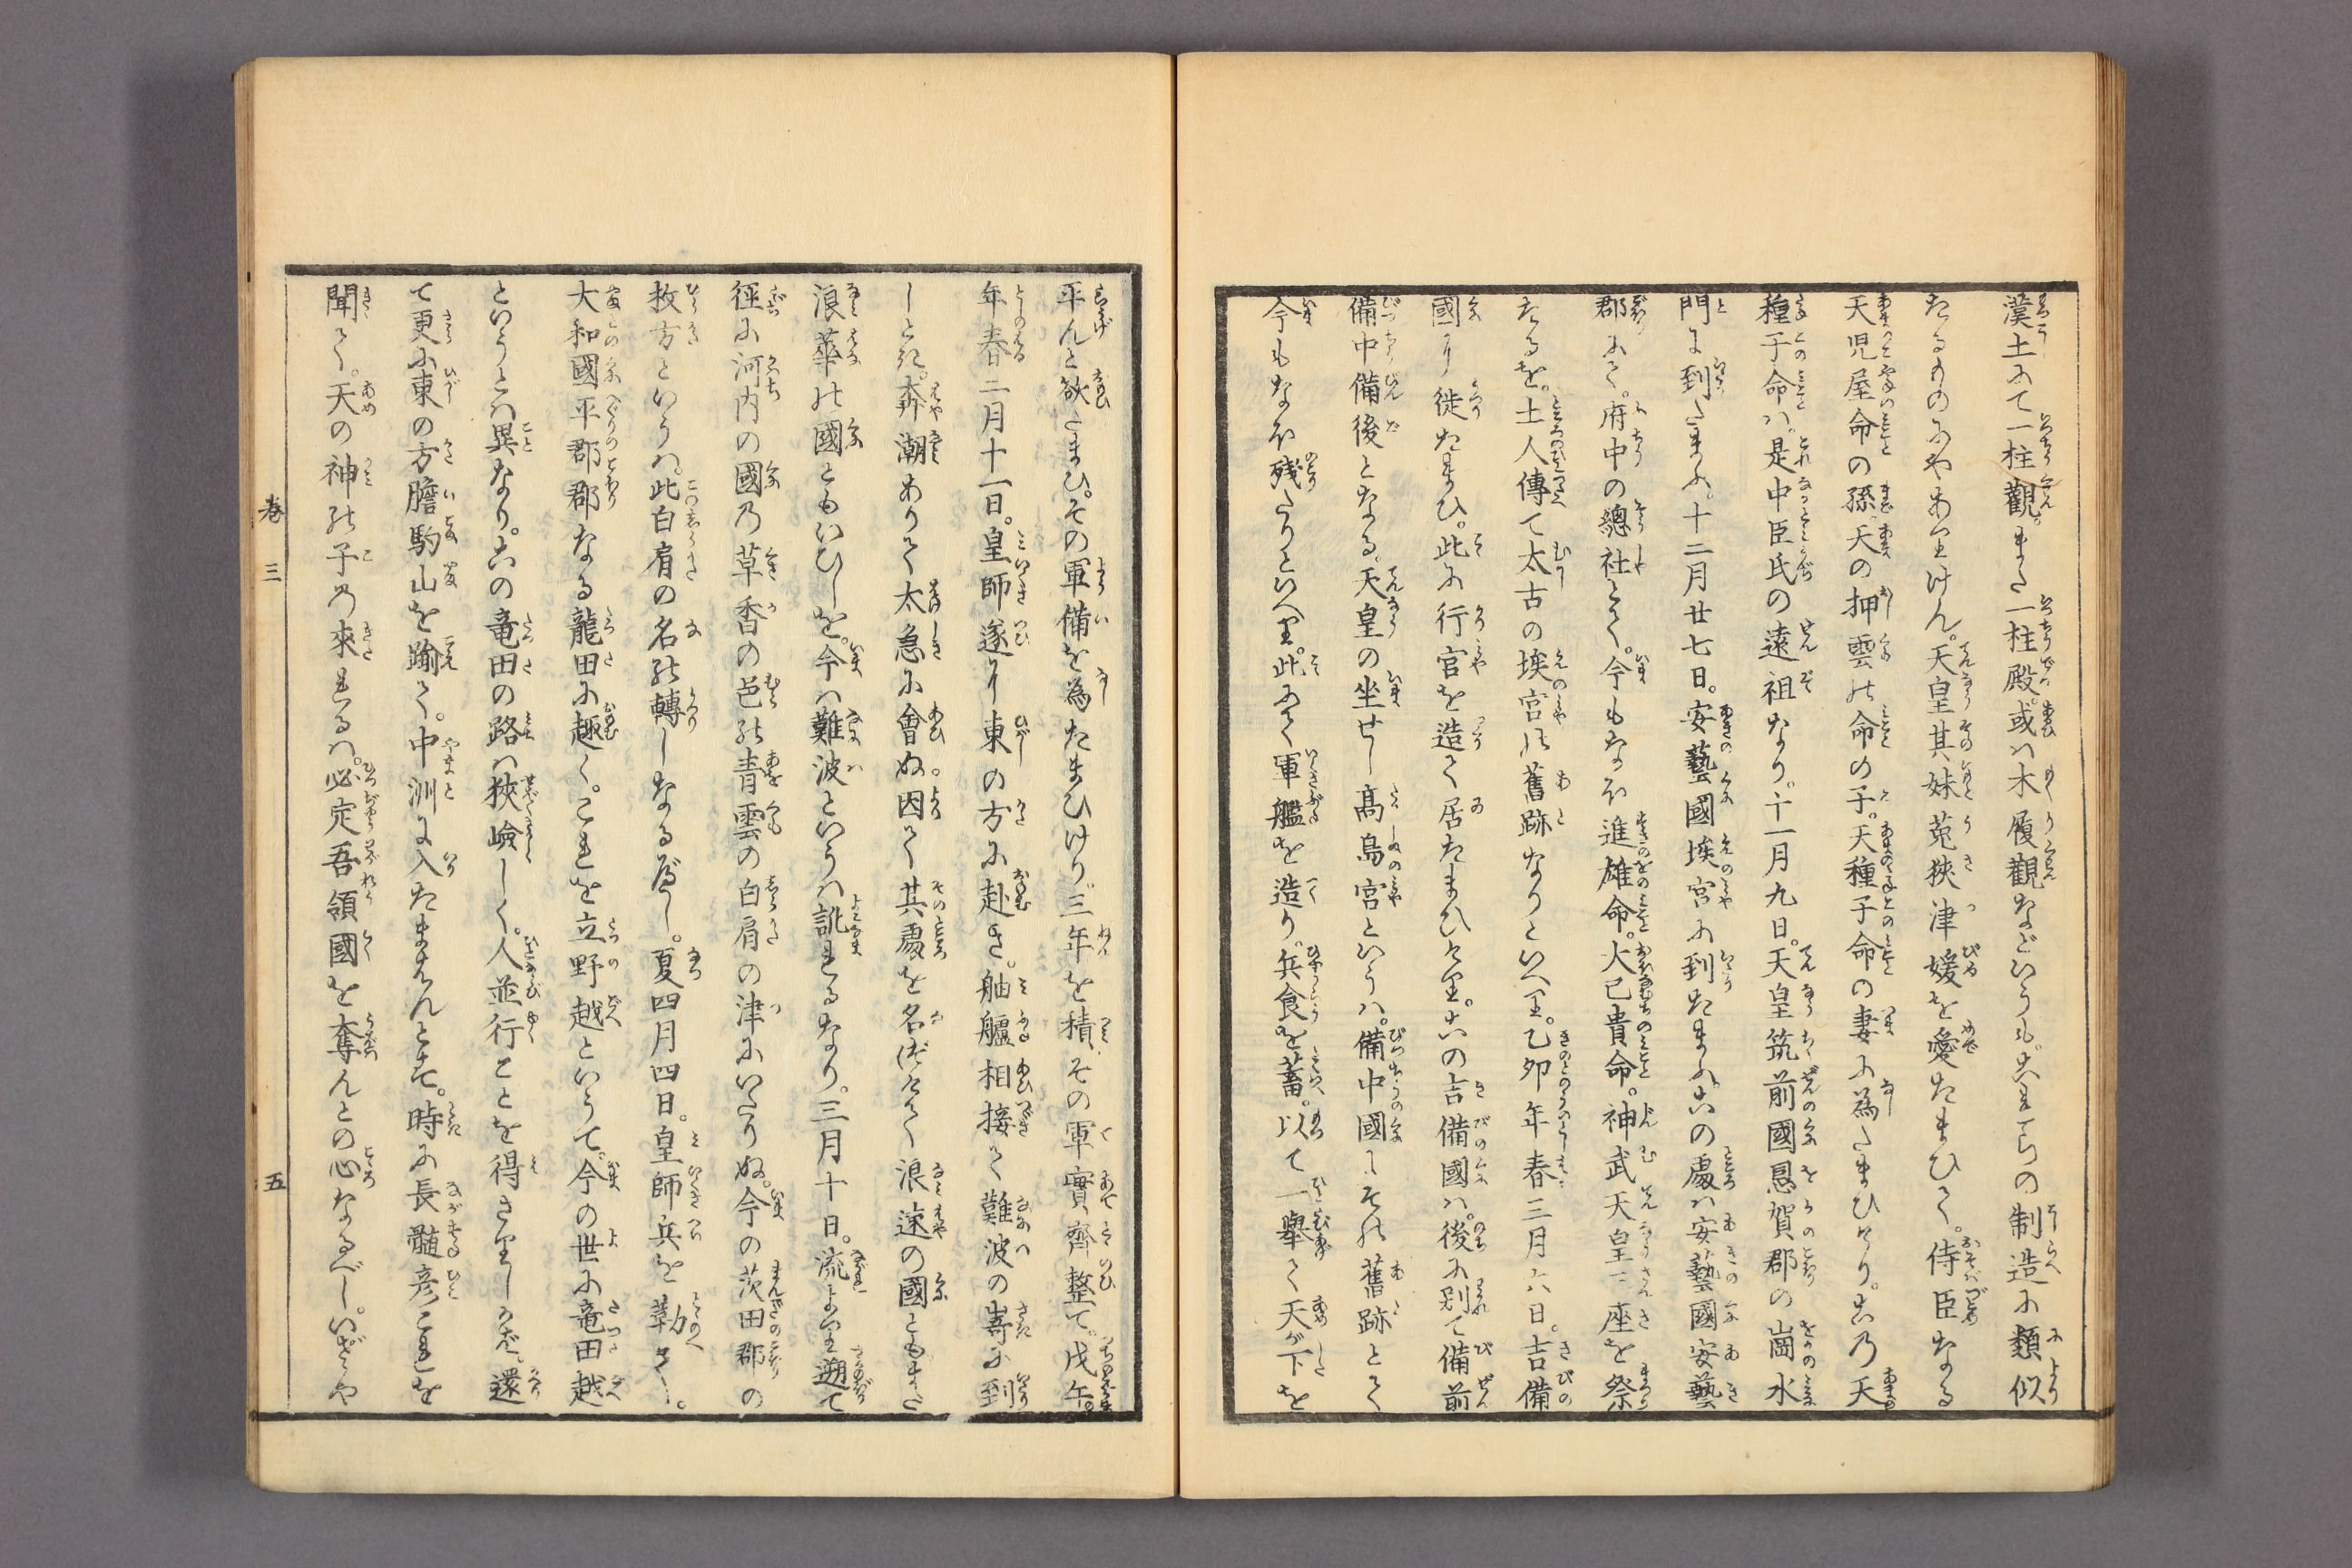 漢土にて一柱觀。また一柱殿。或ハ木履觀などいうも。これらの制造に類似
たるものにやありけん。天皇其妹菟狹津媛を愛たまひて。侍臣なる
天児屋命の孫。天の押雲の命の子。天種子命の妻に為たまひけり。この天
種子命ハ。是中臣氏の遠祖なり。十一月九日。天皇筑前國恩賀郡の崗水
門に到たまふ。十二月廿七日。安藝國埃宮に到たまふ。この處ハ安藝國安藝
郡にて。府中の總社とて。今もなほ進雄命。大已貴命。神武天皇三座を祭
たるを。土人傳て太古の埃宮の舊跡なりといへり。乙卯年春三月六日。吉備
國に徙たまひ。此に行宮を造て居たまひけり。この吉備國ハ。後に別て備前
備中備後となる。天皇の坐せし髙島宮といふハ。備中國にその舊跡とて
今もなほ残たりといへり。此にて軍艦を造り。兵食を蓄。以て一擧て天が下を
平んと欲たまひ。その軍備を為たまひけり。三年を積その軍實齊整て。戊午
年春二月十一日。皇師遂に東の方に赴き。舳艫相接て難波の﨑に到
しとき。奔潮ありて太急に會ぬ。因て其處を名づけて浪速の國ともまた
浪華の國ともいひしを。今ハ難波といふハ訛れるなり。三月十日。流より遡て
徑に河内の國の草香の邑の青雲の白肩の津にいたりぬ。今の茨田郡の
枚方といふハ。此白肩の名の轉しなるべし。夏四月四日。皇師兵を勒て。
大和國平群郡なる龍田に趣く。これを立野越といふて。今の世に竜田越
といふとハ異なり。この竜田の路ハ狹嶮しく。人並行ことを得ざりしかば。還
て更に東の方膽駒山を踰て。中洲に入たまはんとす。時に長髄彦これを
聞て。天の神の子の來れるハ。必定吾領國を奪んとの心なるべし。いざや
巻三
五